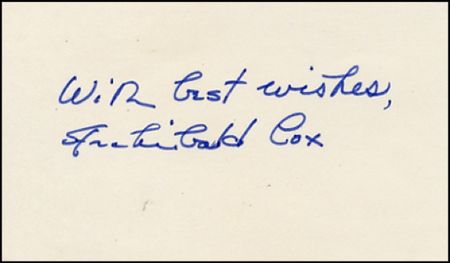 With best wishes,
Archibald Cox